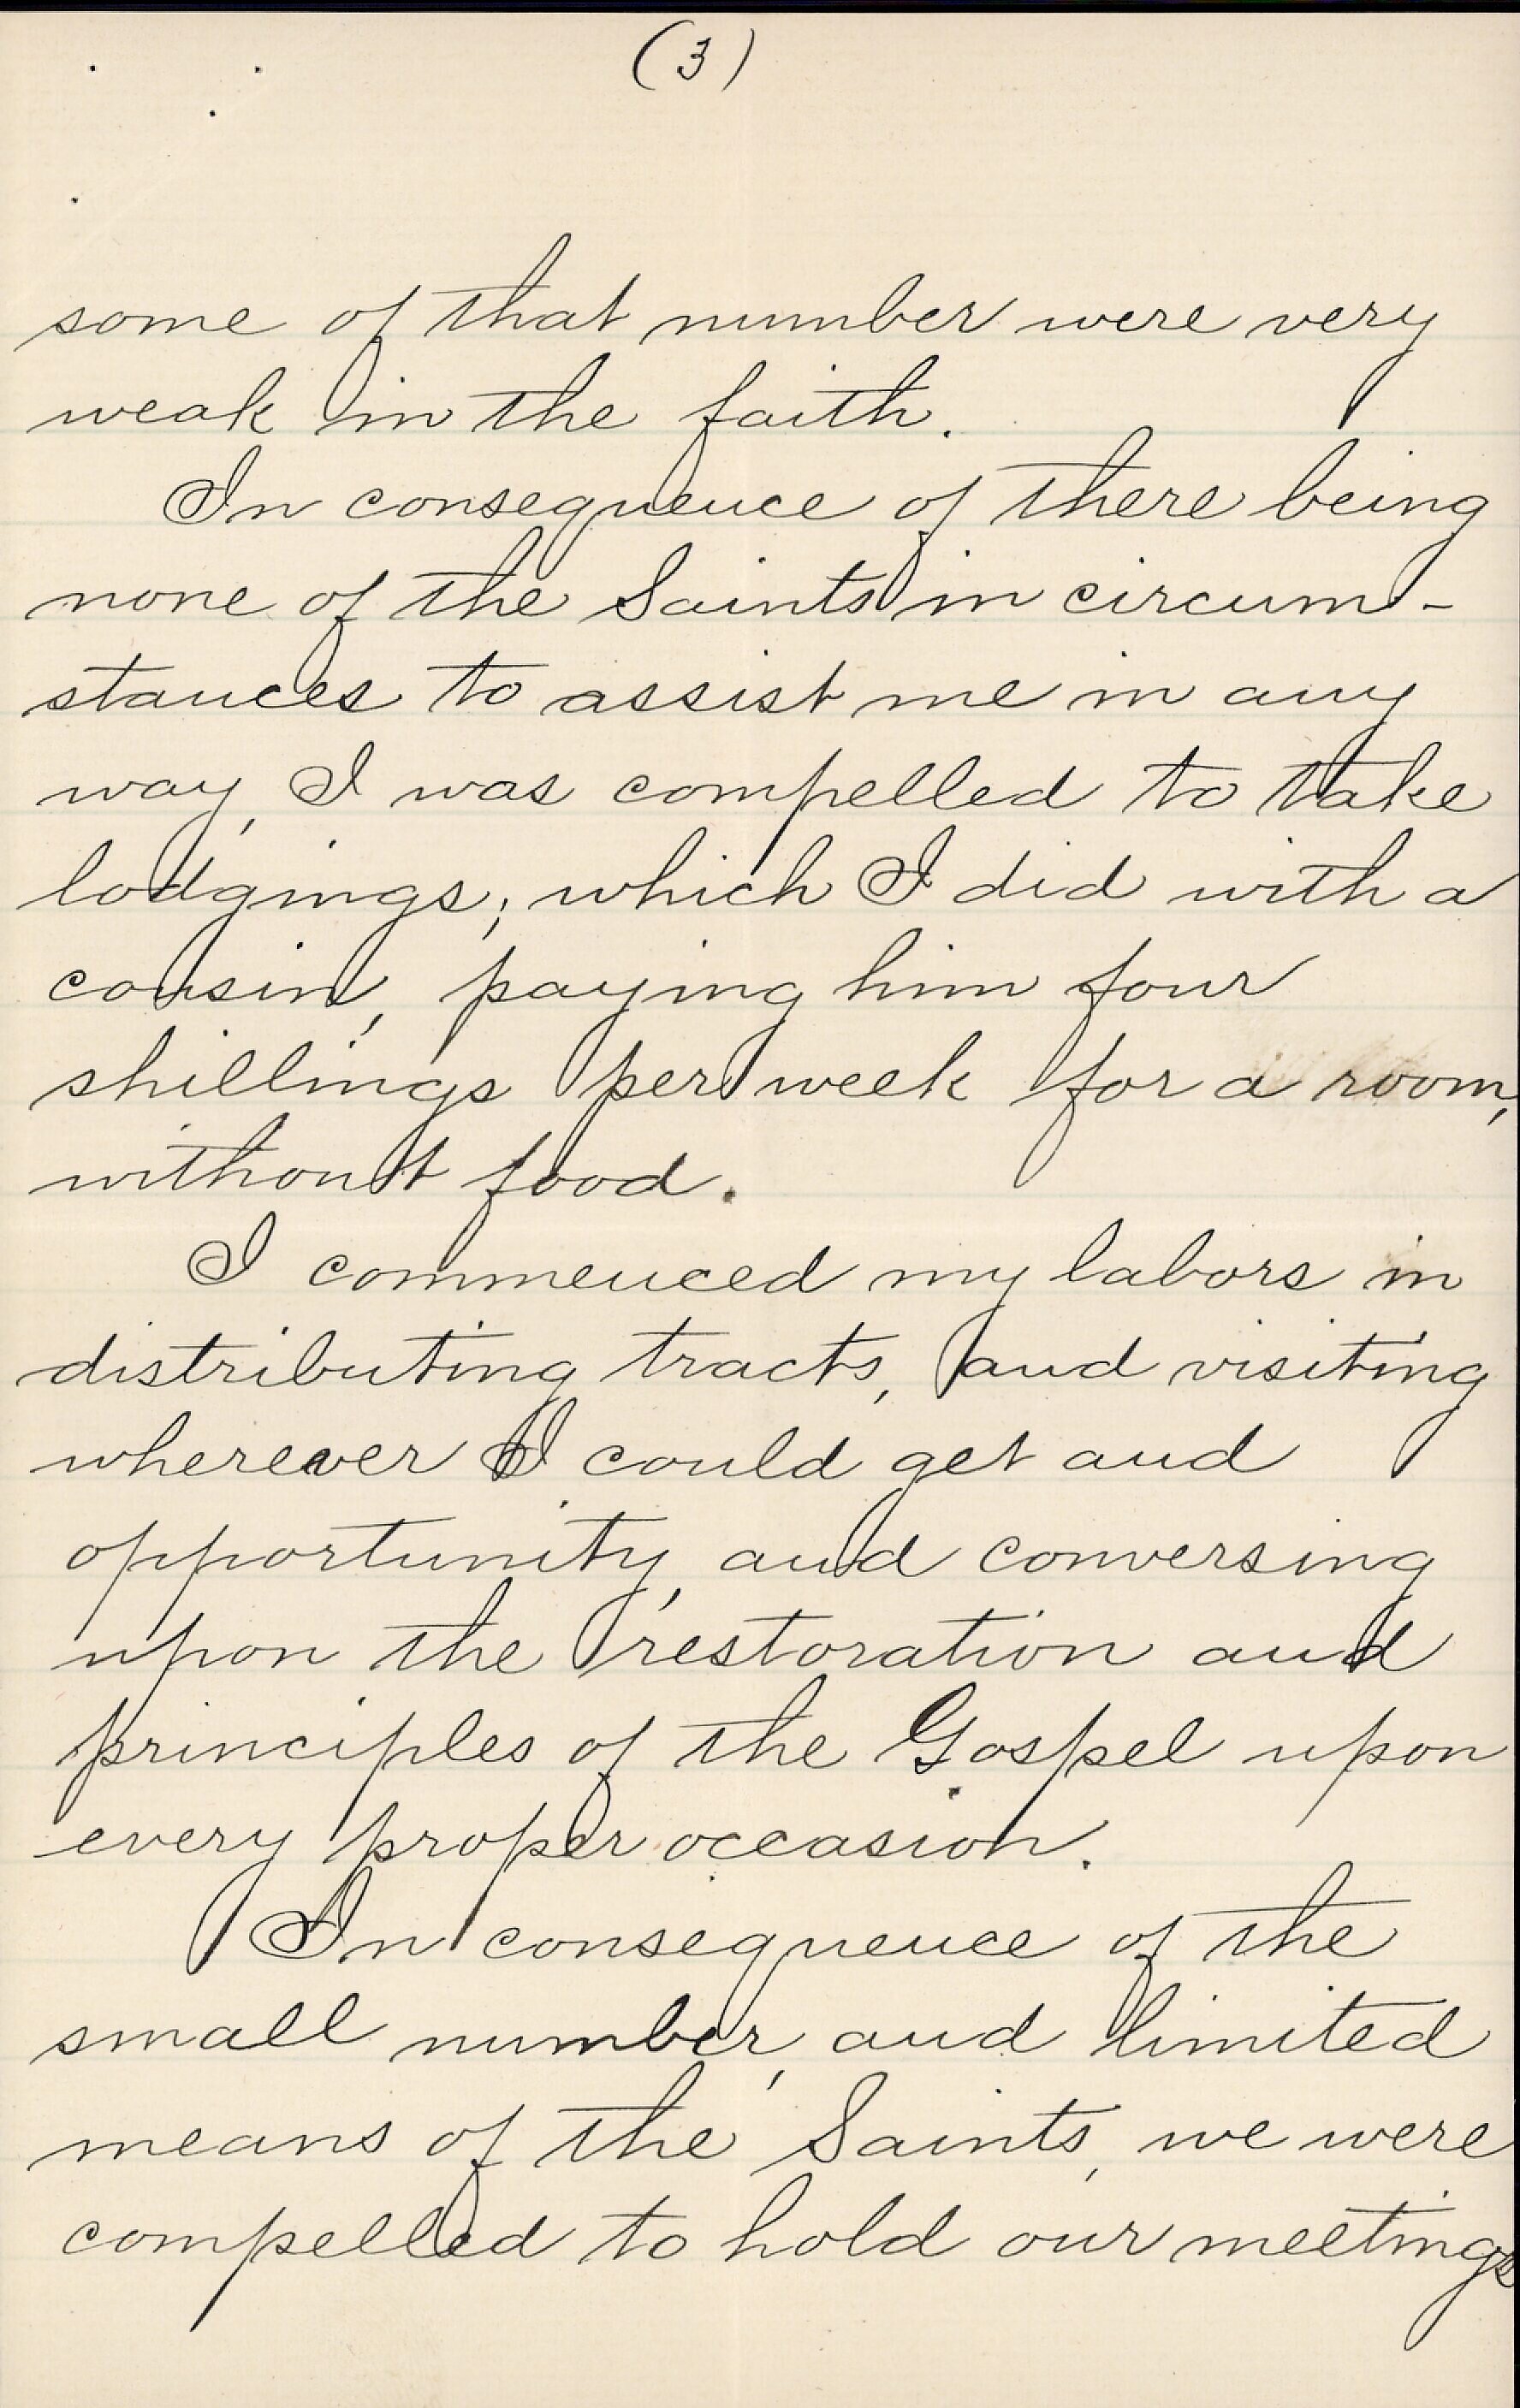 (3)
some of that number were very
weak in the faith.
In consequence of there being
none of the Saints in circum-
stances to assist me in any
way, I was compelled to take
lodgings; which I did with a
cousin, paying him four
shillings per week for a room,
without food.
I commenced my labors in
distributing tracts, and visiting
wherever I could get and
opportunity, and conversing
upon the restoration and
principles of the Gospel upon
every proper occasion.
In consequence of the
small number, and limited
means of the Saints, we were
compelled to hold our meetings